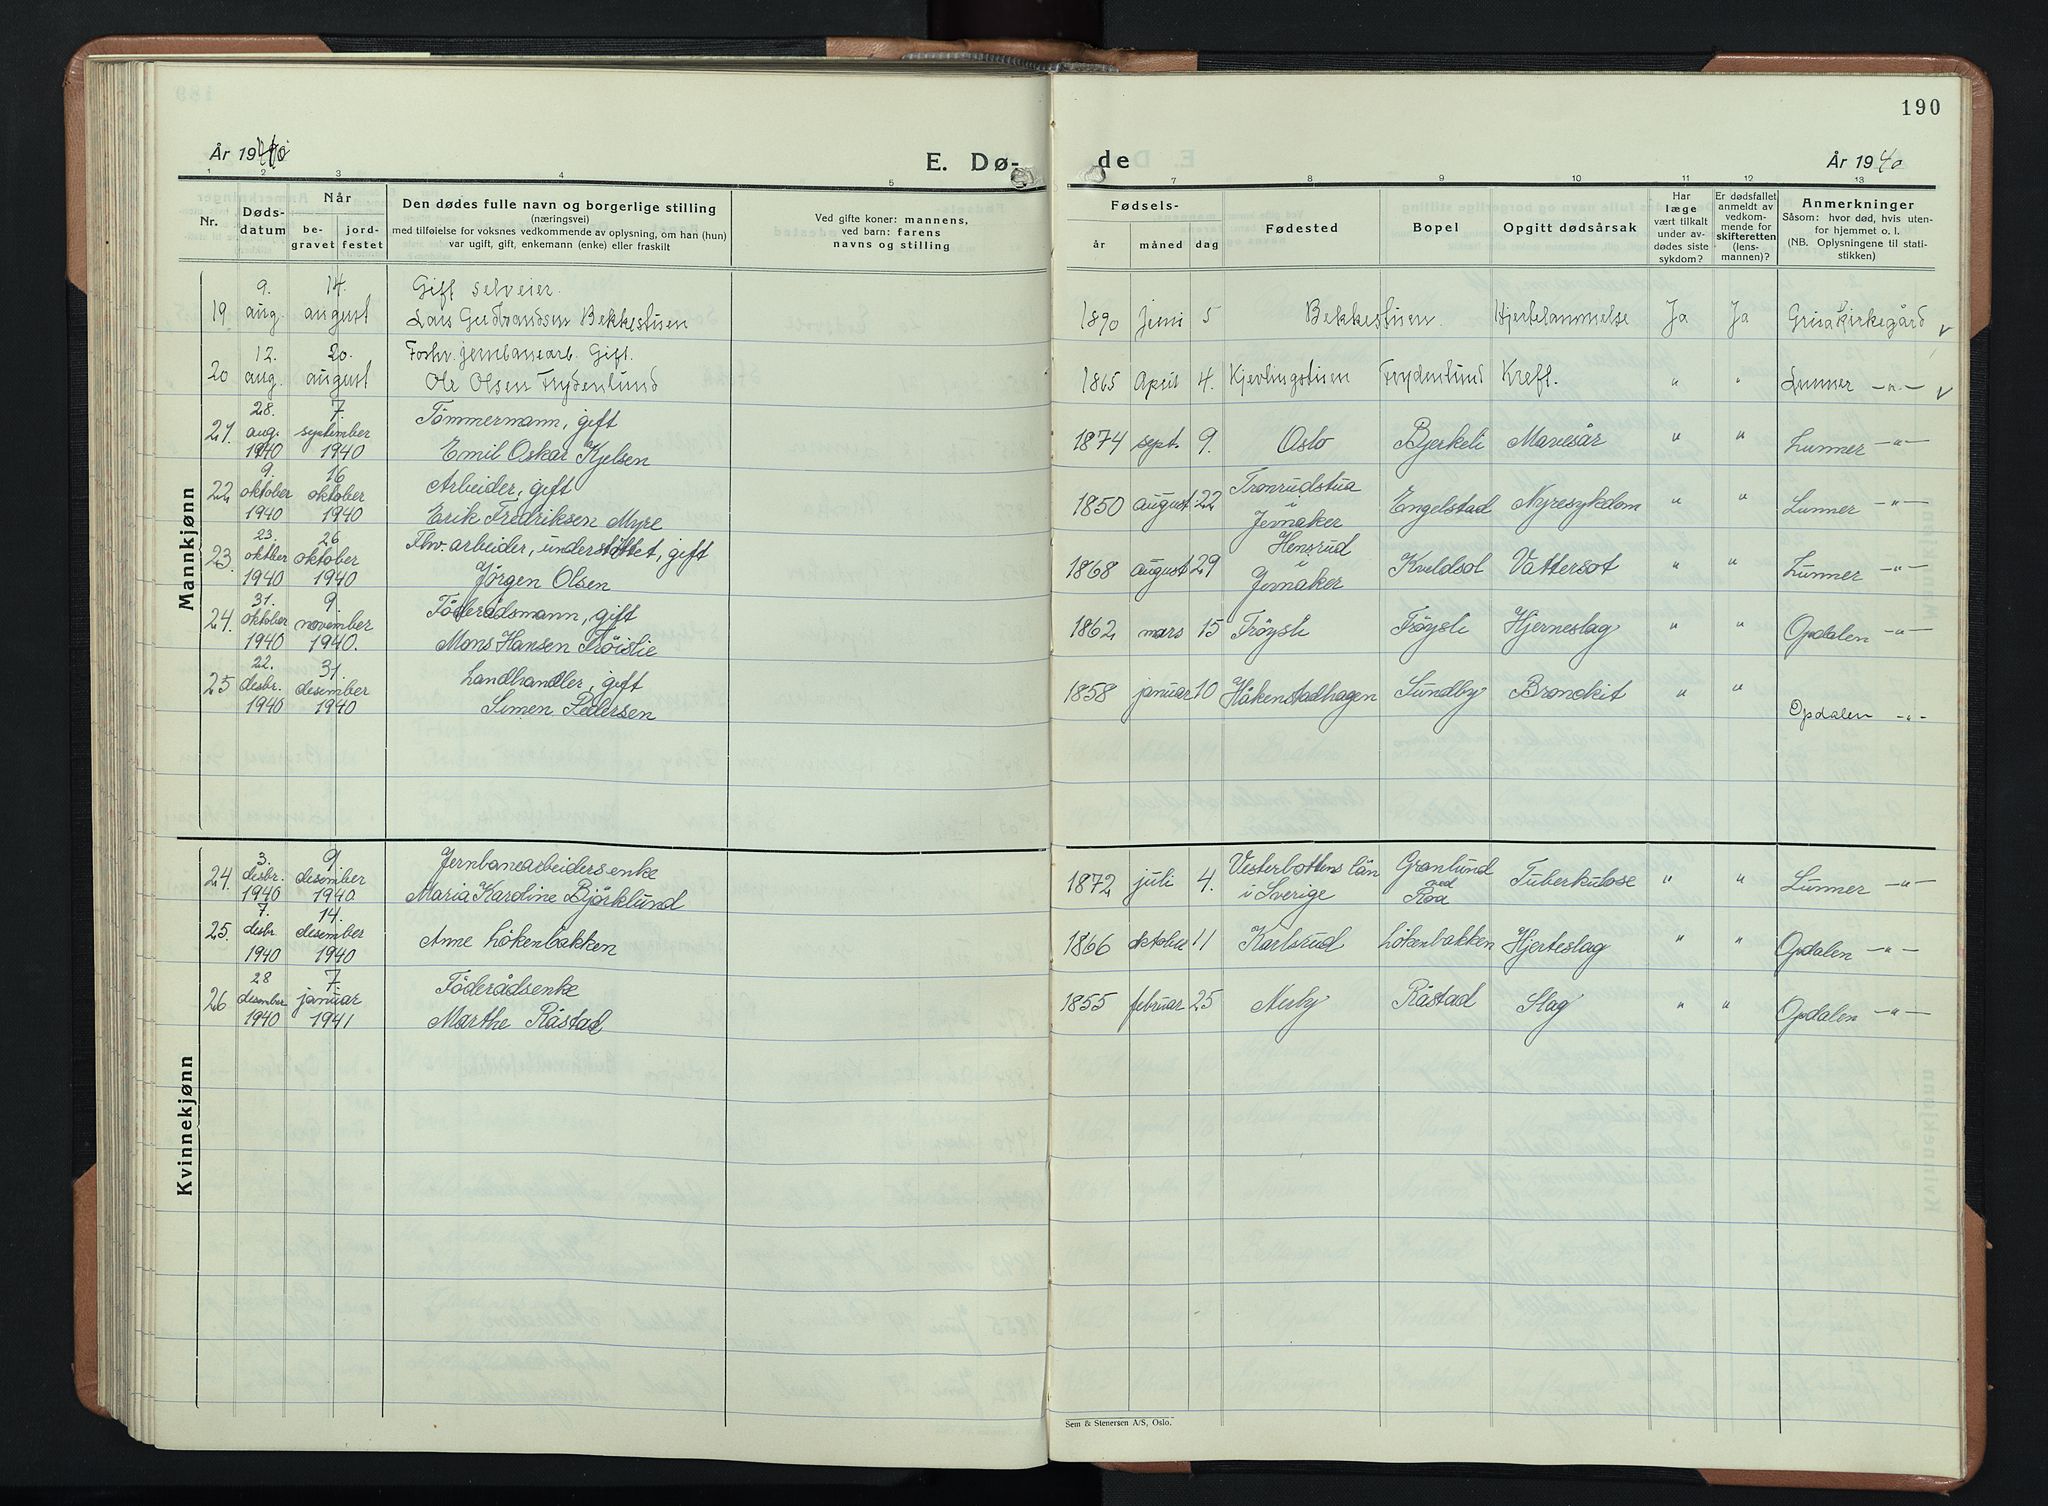 190
År 1940
E. Dø-
de
År 1940
1 2 3 4 5 7 8 9 10 11 12 13
Nr.
Døds-
datum
Når
be-
gravet
jord-
festet
Den dødes fulle navn og borgerlige stilling
(næringsvei)
med tilføielse for voksnes vedkommende av oplysning, om han (hun)
var ugift, gift, enkemann (enke) eller fraskilt
Ved gifte koner: mannens,
ved barn: farens
navns og stilling
Fødsels-
år måned dag
Fødested
Bopel
Opgitt dødsårsak
Har
læge
vært tilkalt
under av-
dødes siste
sykdom?
Er dødsfallet
anmeldt av
vedkom-
mende for
skifteretten
(lens-
mannen)?
Anmerkninger
Såsom: hvor død, hvis uten-
for hjemmet o. l.
(NB. Oplysningene til stati-
stikken)
Mannkjønn
9. 14. Gift selveier.
19 aug. august Lars Gudbrandsen Bekkestuen 1890 Juni 5 Bekkestuen. Hjertelammelse Ja Ja Grua Kirkegård
12. 20. Forhv. jernbanearb. Gift.
20 aug. august Ole Olsen Frydenlund 1865 April 4. Kjevlingstuen Frydenlund Kreft. " " Lunner -"-
28. 7. Tömmermann, gift
21. aug. september 1874 sept. 9. Oslo Bjerkeli Mavesår " " Lunner -"-
1940 1940 Emil Oskar Kjelsen
9. 16 Arbeider, gift Tronrudstua
22 oktober oktober 1850 august 22 i Engelstad Nyresykdom " " Lunner -"-
1940 1940 Erik Fredriksen Myre Jevnaker
23. 26 Fhv. arbeider, understöttet, gift Hensrud
23. oktber oktober 1868 august 29 i Kveldsol Vattersot " " Lunner -"-
1940 1940 Jörgen Olsen Jevnaker
31. 9. Föderådsmann, gift
24. oktober november 1862 mars 15 Tröysli Tröysli Hjerneslag " " Opdalen -"-
1940 1940. Mons Hansen Tröislie
22. 31. Landhandler, gift
25 desbr. desember 1858 januar 10 Håkenstadhagen Sundby Bronckit " "
1940 1940 Simen Pedersen Opdalen -"-
Kvinnekjønn
3. 9. Jernbanearbeidersenke Vesterbottens län Granlund
24. desbr. desember 1872 juli 4. i Sverige ved Roa Tuberkulose " " Lunner -"-
1940 1940. Maria Karoline Björklund
7. 14.
25. desbr. desember Anne Lökenbakken 1866 oktober 11 Karlsrud Lökenbakken Hjerteslag " " Opdalen -"-
1940 1940
28 7. Föderådsenke
26 desember januar 1855 februar 25 Nerby Råstad Slag " " Opdalen -"-
1940 1941 Marthe Råstad
Sem & Stenersen A/S, Oslo.